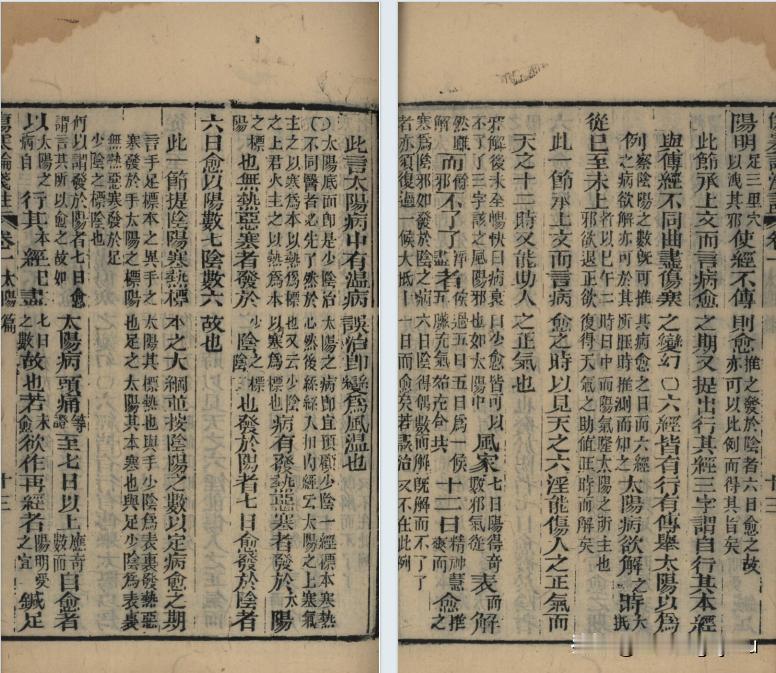 此言太陽病中有溫病誤治即變為風溫也
〇太陽底面即是少陰治太陽之病即宜預顧少陰一經標本寒熱
不同醫者必先了然於心然後絲絲入扣內經云太陽之上寒氣
主之以寒為本以熱為標也又云少陰之上君火主之以熱為本以寒為標也病有發熱惡寒者發於太陽
之標陽也無熱惡寒者發於少陰之標陰也發於陽者七日愈發於陰者
六日愈以陽數七陰數六故也
此一節提陰陽寒熱標本之大綱並按陰陽之數以定病愈之期
言手足標本之異手之太陽其標熱也與手少陰為表裏發熱惡
寒發於手太陽之標陽也足之太陽其本寒也與足少陰為表裏
無熱惡寒發於足少陰之標陰也
何以謂發於陽者七日愈請言其所以愈之故如太陽病頭痛等證至七日以上應奇數而自愈者
以太陽之病自行其本經已盡七日之數故也若未愈欲作再經者陽明受之宜鍼足
傷寒論淺註 卷一 太陽篇 十三
陽明足三里穴以洩其邪使經不傳則愈推之發於陰者六日愈之故亦可以此例而得其旨矣
此節承上文而言病愈之期又提出行其經三字謂自行其本經
與傳經不同曲盡傷寒之變幻〇六經皆有行有傳舉太陽以為
例察陰陽之數既可推其病愈之日而六經之病欲解亦可於其所旺時推測而知之太陽病欲解之時大抵
從巳至未上者以巳午二時日中而陽氣隆太陽之所主也邪欲退正欲復得天氣之助值正時而解矣
此一節承上文而言病愈之時以見天之六淫能傷人之正氣而
天之十二時又能助人之正氣也
邪解後未全暢快曰病衰曰少愈皆可以不了了三字該之風陽邪也如太陽中風家七日陽得奇數邪氣從表而解
然雖解而餘邪不了了淨盡者俟過五日五日為一候五臟元氣始充合共十二日精神慧爽而愈推之
寒為陰邪如發於陰之病六日陰得偶數而解既解而不了了
者亦須復過一候大抵十一日而愈矣若誤治又不在此例